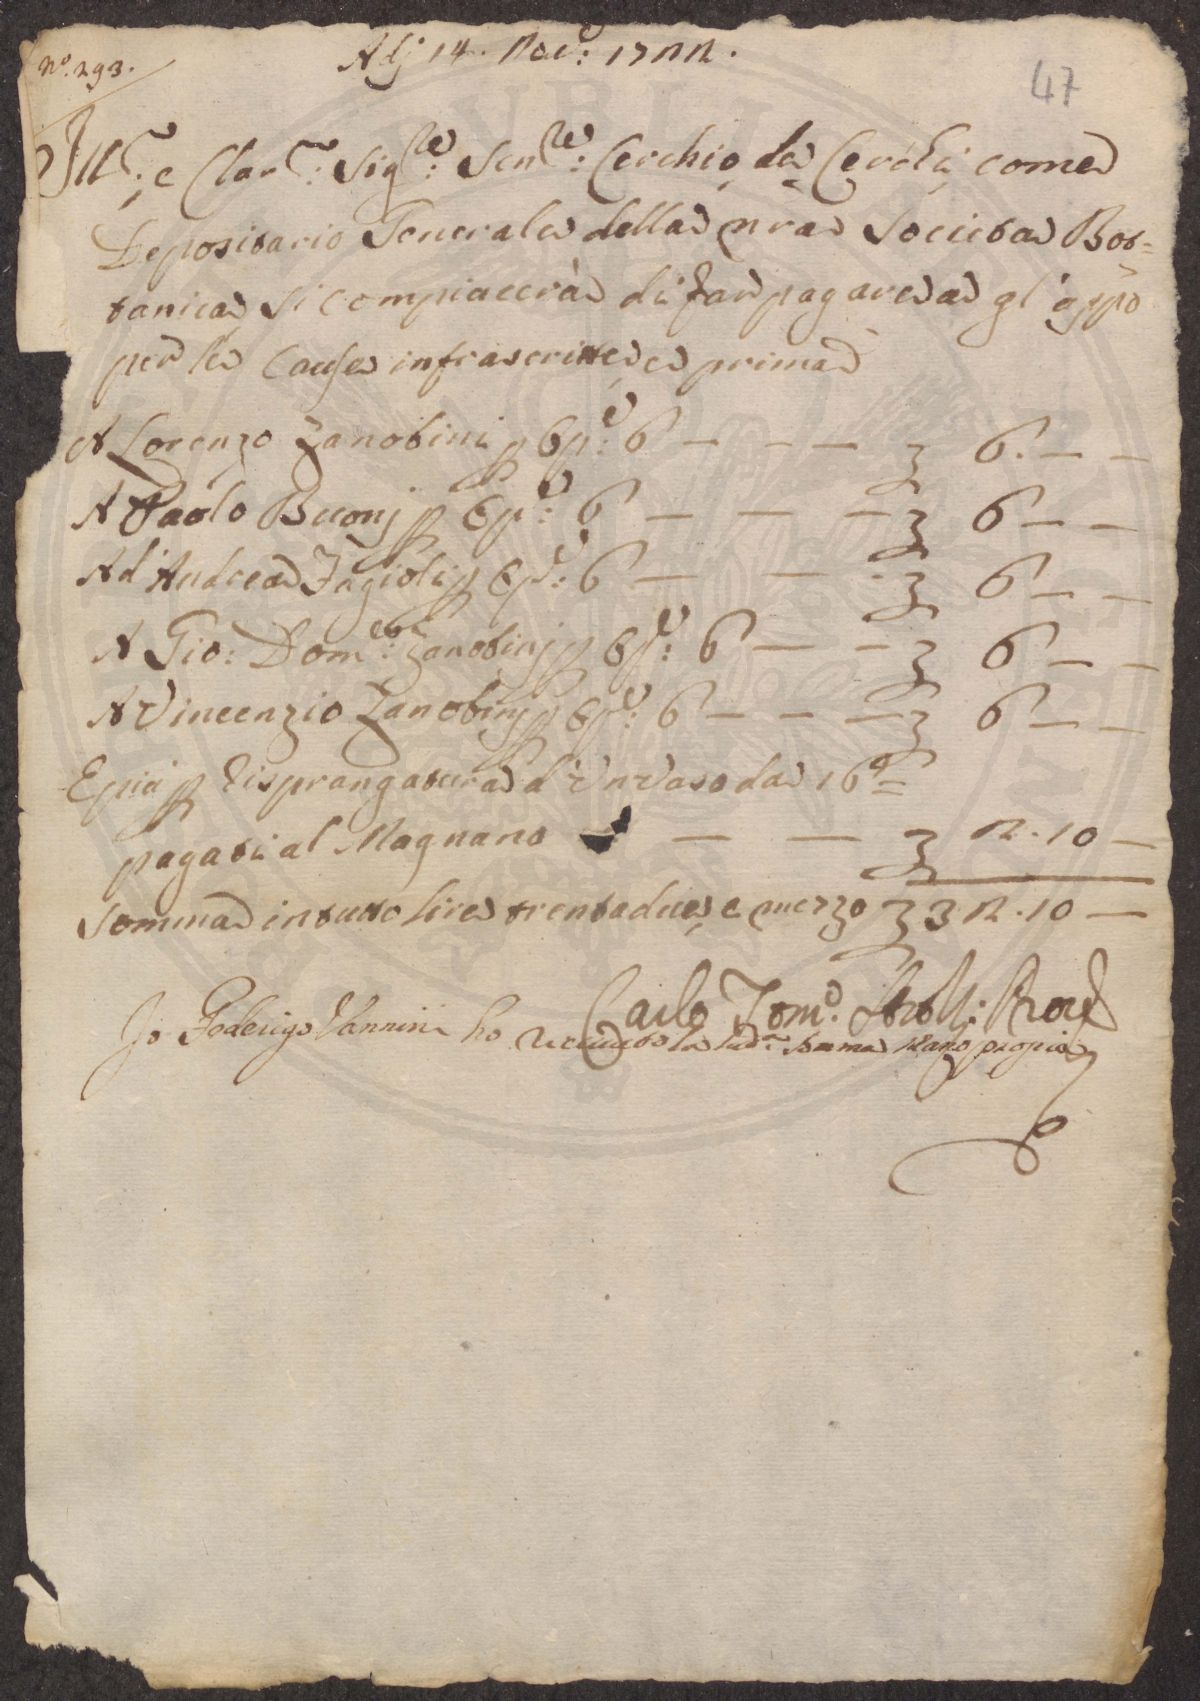 N.° 293.
Adj 14. Nov.e: 1722.
47
Ill.e: e Clar.mo: Sig.re: Sen.re: Cerchio de Cerchi come
Depositario Generale della nra Societa Bot=
tanica si compiacerà di far pagare a gl'appo
per le Cause infrascritte, e prima
A Lorenzo Zanobini p Op.e: 6 — — — £ 6. — —
A Paolo Buonj p Op.e: 6 — — — £ 6 — —
Ad Andrea Fagioli p Op.e: 6 — — £ 6 — —
A Gio: Dom.co: Zanobinj p Op.e: 6 — — £ 6 — —
A Vincenzio Zanobinj p Op.e: 6 — — — £ 6 — —
E piu p risprangatura d'un Vaso da 16
pagati al Magnano — — £ 2. 10 —
Somma in tutto lire trentadue, e mezzo £ 32. 10 —
Carlo Tom.o: Strozzi: Prov.e
Io Goderigo Vannini ho receuto la sud.a somma Mano propria